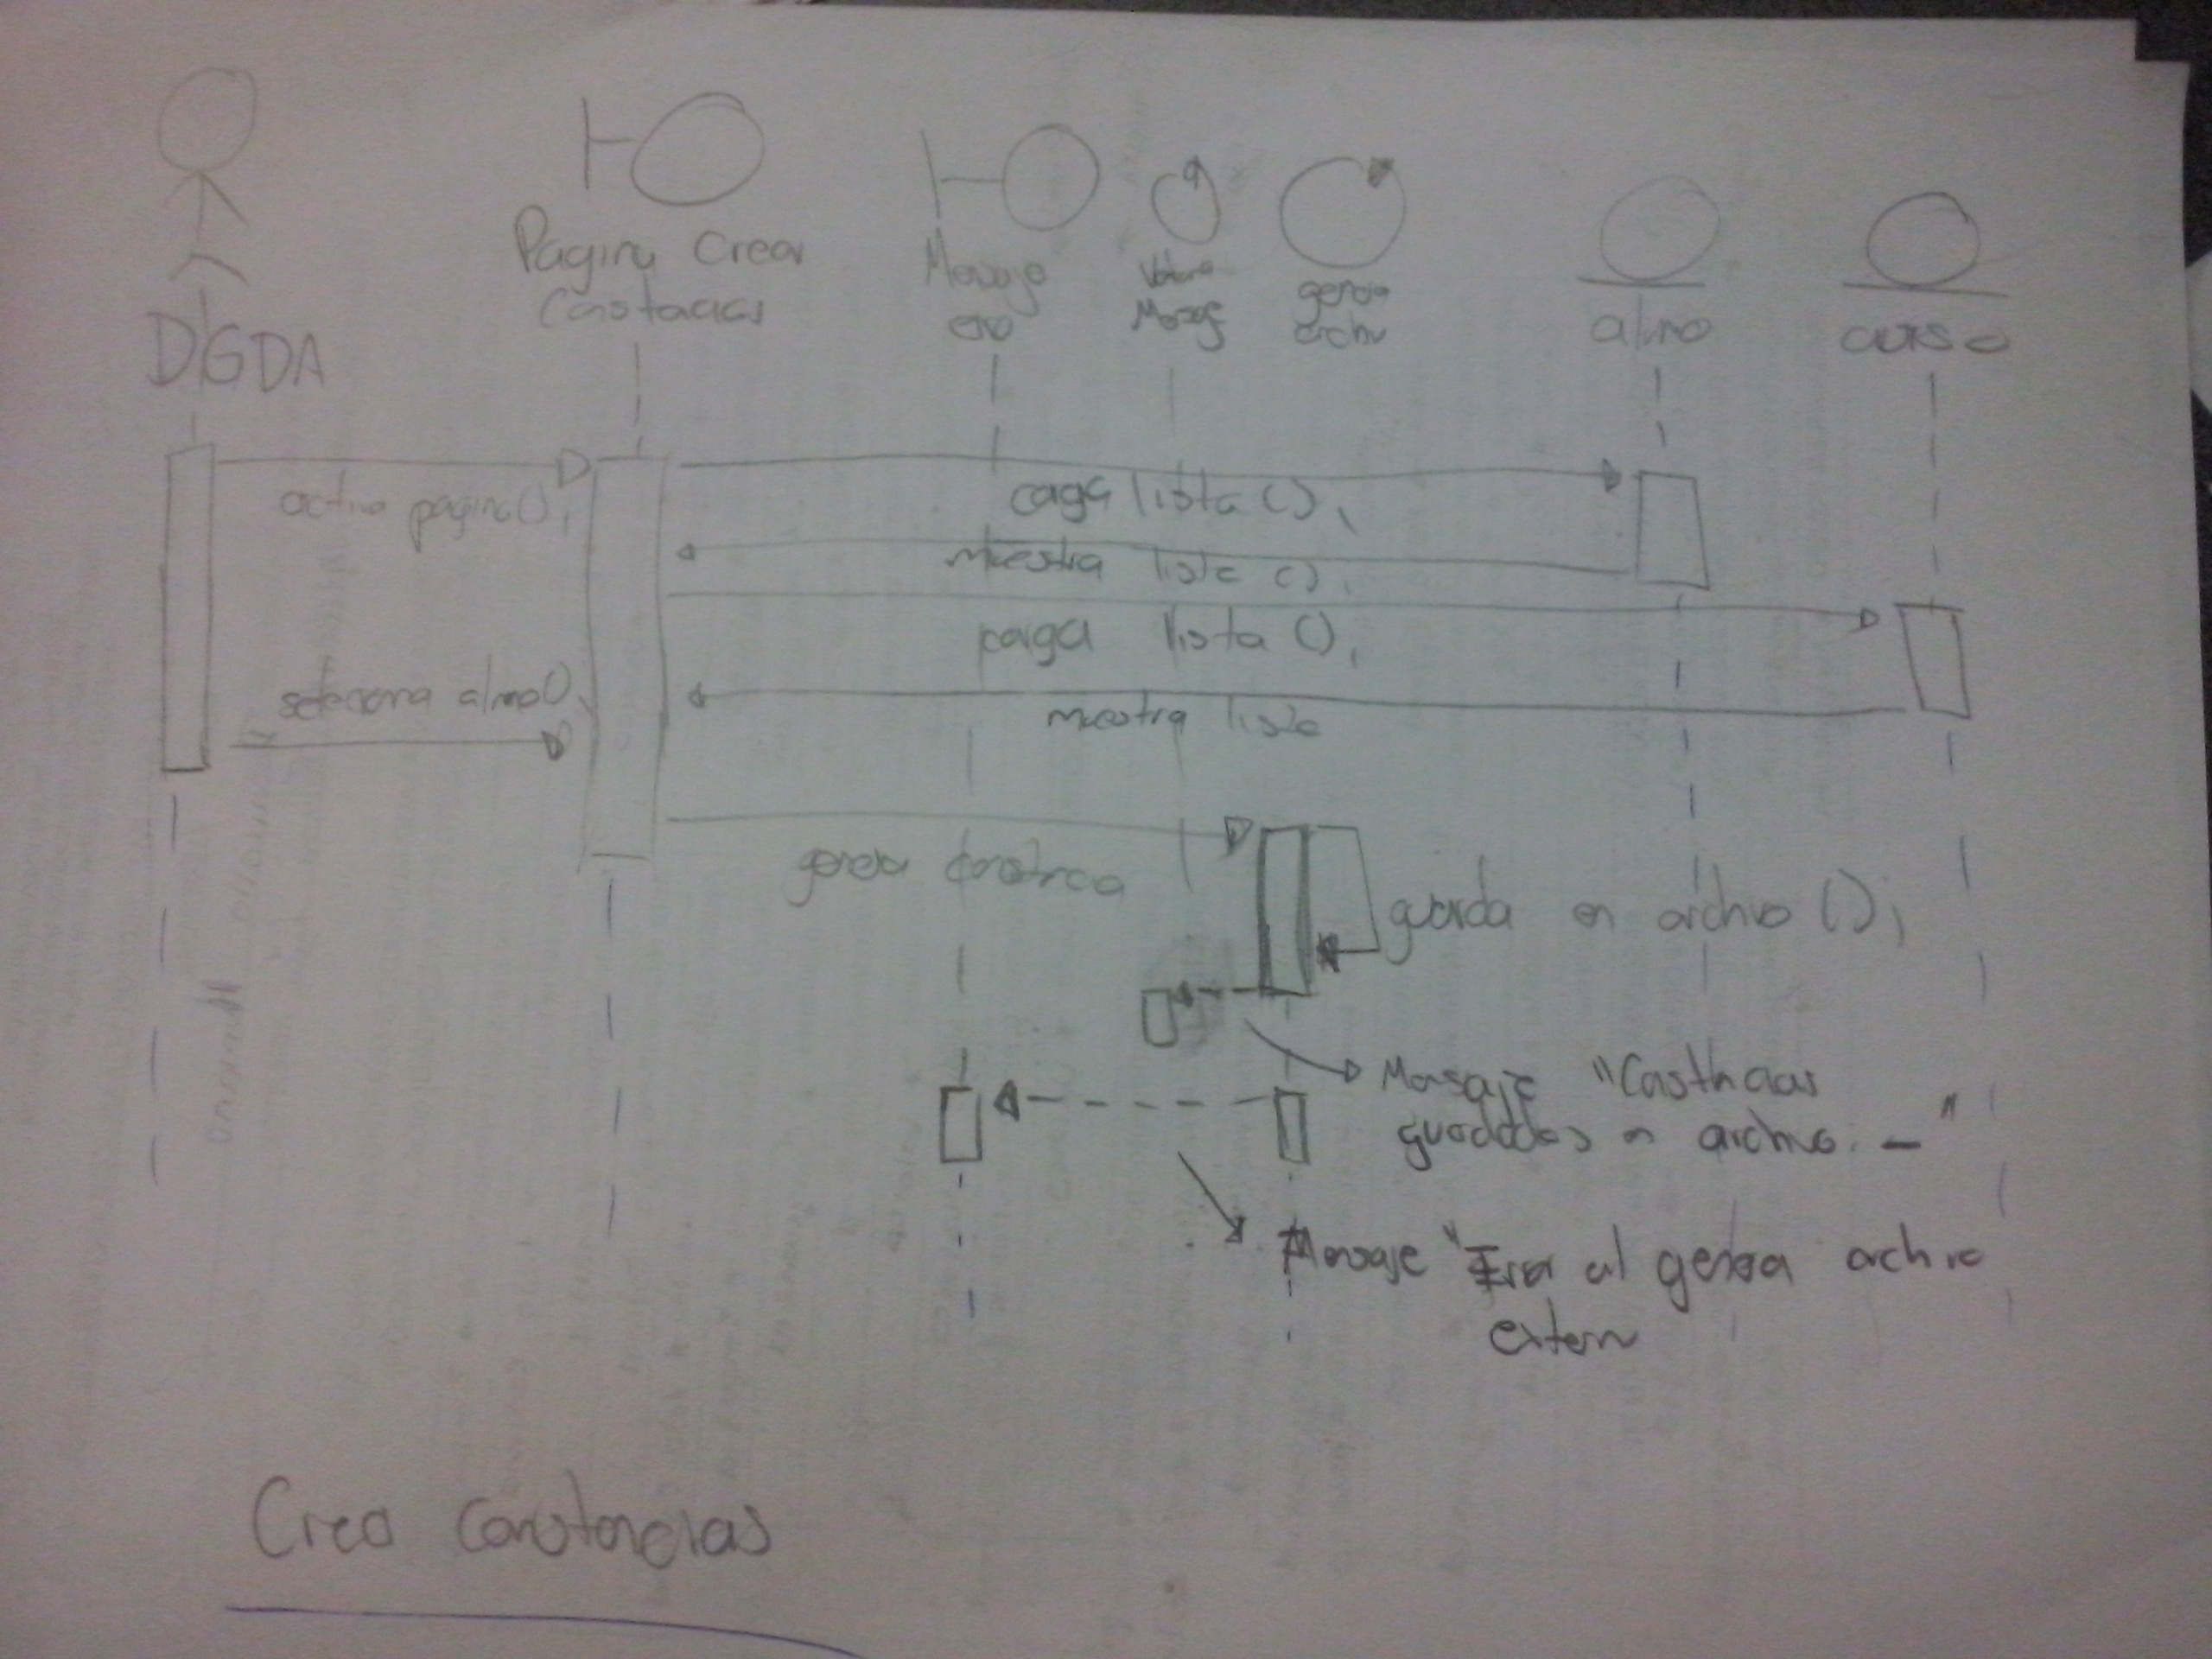 DGDA
Pagina Crear
Constacias
Mensaje
erro
genera
archiv
alumno
curso
activa pagina();
carga lista();
muestra lista();
carga lista();
selecciona alumno();
muestra lista
genera constncia
guarda en archivo();
Mensaje "Constncias
guardadas en archivo. _"
Mensaje "Error al generar archivo
extern
Crea Constancias